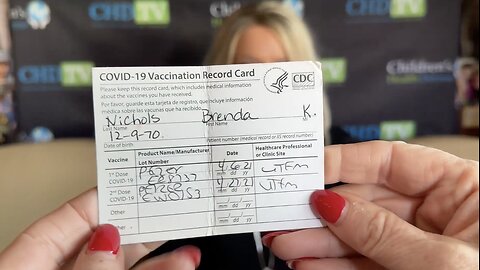 CHDTV
CHDTV
CHDTV
Children's
COVID-19 Vaccination Record Card
CDC
Please keep this record card, which includes medical information
about the vaccines you have received.
Por favor, guarde esta tarjeta de registro, que incluye información
médica sobre las vacunas que ha recibido.
Nichols Brenda K.
Last Name First Name MI
12-9-70.
Date of birth Patient number (medical record or IIS record number)
Vaccine Product Name/Manufacturer Date Healthcare Professional
Lot Number or Clinic Site
1st Dose Pfizer 4/6/21 UTFM
COVID-19 mm dd yy
2nd Dose Pfizer 4/27/21 UTFM
COVID-19 mm dd yy
Other
mm dd yy
Other
mm dd yy